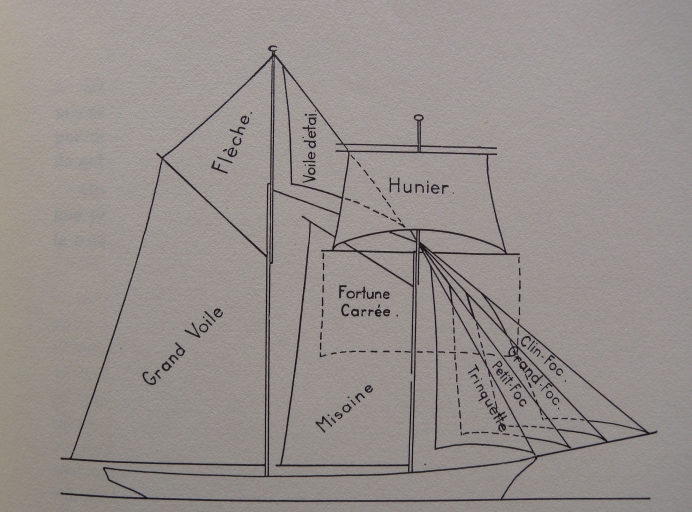 Flèche.
Voile d'étai
Hunier.
Fortune
Carrée.
Grand Voile
Misaine
Trinquette
Petit-Foc
Grand-Foc.
Clin-Foc.